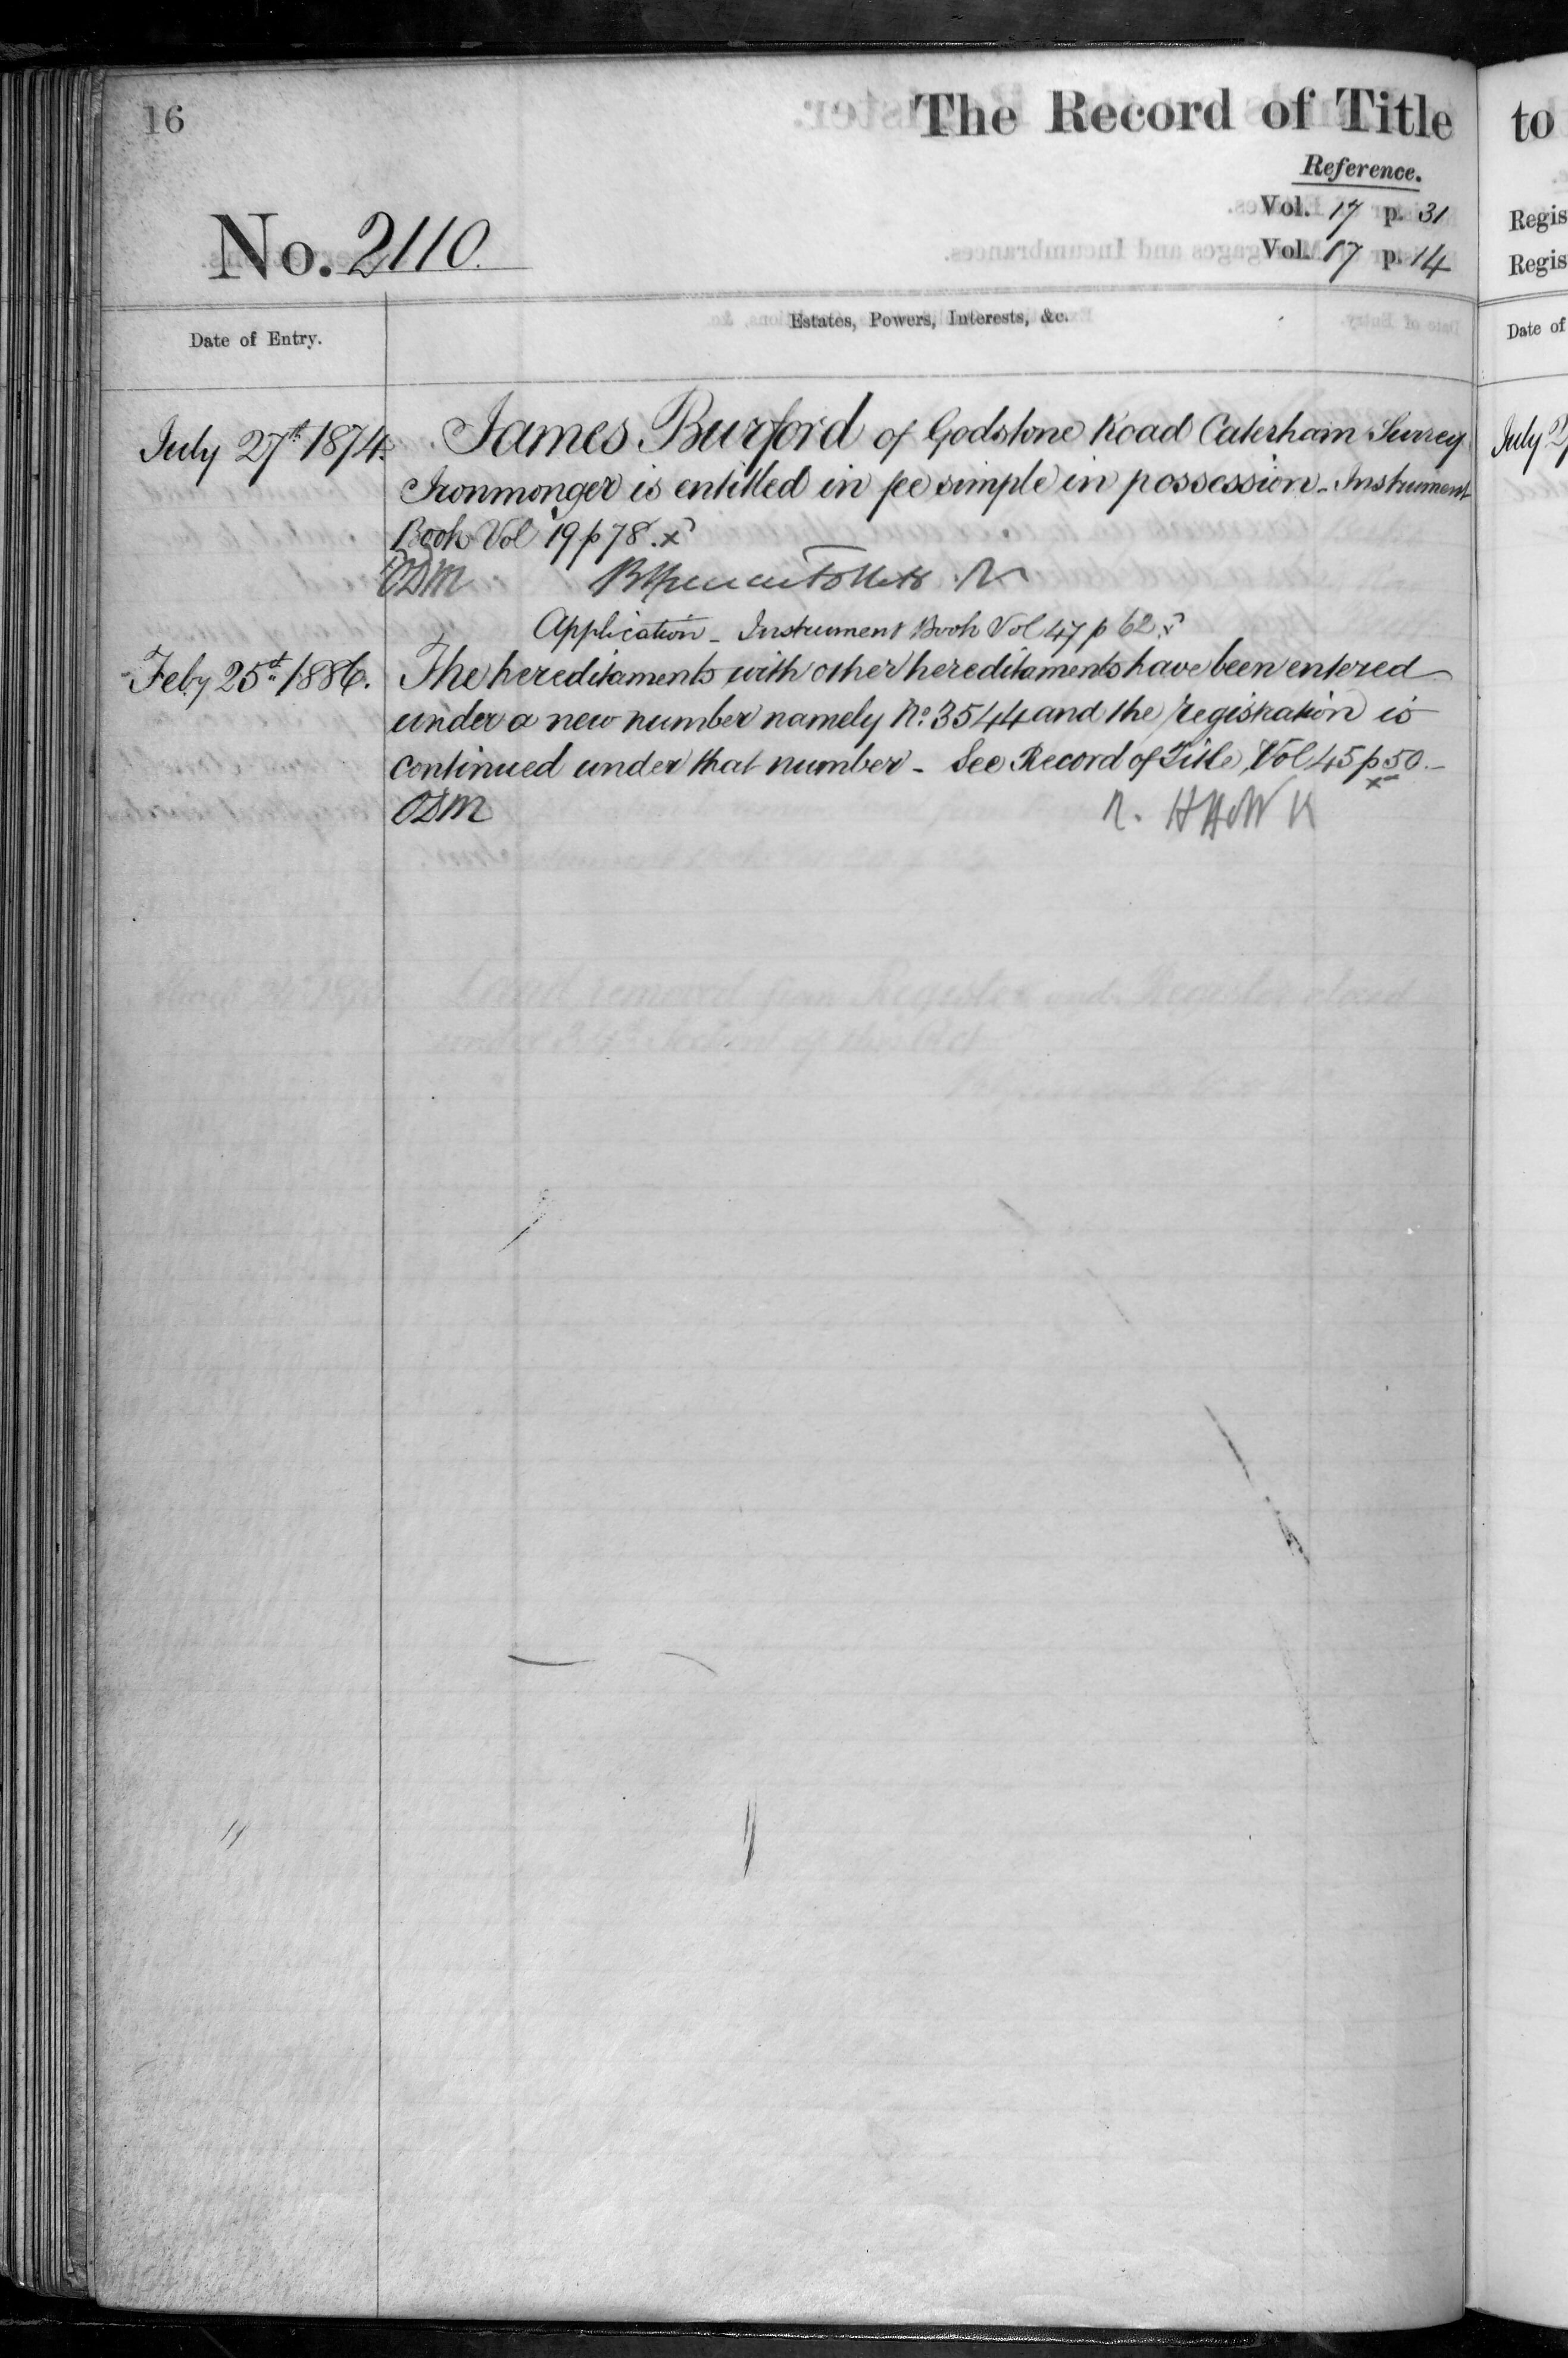 16
The Record of Title
Reference.
Vol. 17 p. 31
Vol. 17 p. 14
No. 2110.
Date of Entry.
Estates, Powers, Interests, &c.
July 27th 1874. James Burford of Godstone Road Caterham Surrey
Ironmonger is entitled in fee simple in possession - Instrument
Book Vol 19 p 78. x
ODM
Application - Instrument Book Vol 47 p 62 x
Feby 25th 1886. The hereditaments with other hereditaments have been entered
under a new number namely No. 3544 and the registration is
continued under that number - See Record of Title, Vol 45 p 50 -
x
ODM
to
Regis
Regis
Date of
July 2